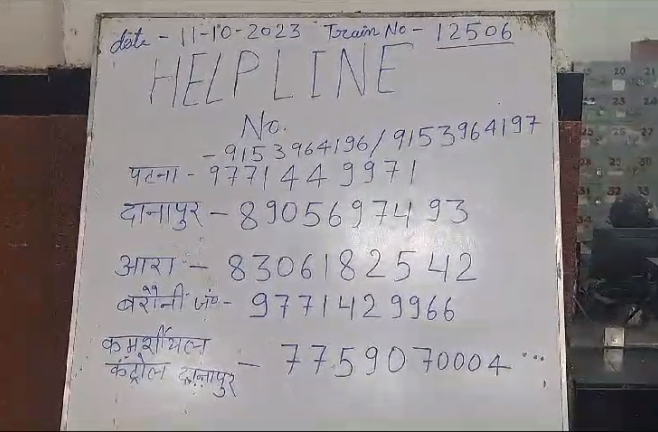 date - 11-10-2023 Train No - 12506
HELPLINE
No.
- 9153964196/9153964197
पटना - 9771449971
दानापुर - 8905697493
आरा - 8306182542
बरौनी जं॰ - 9771429966
कमर्शीयल
कंट्रोल दानापुर - 7759070004 ...